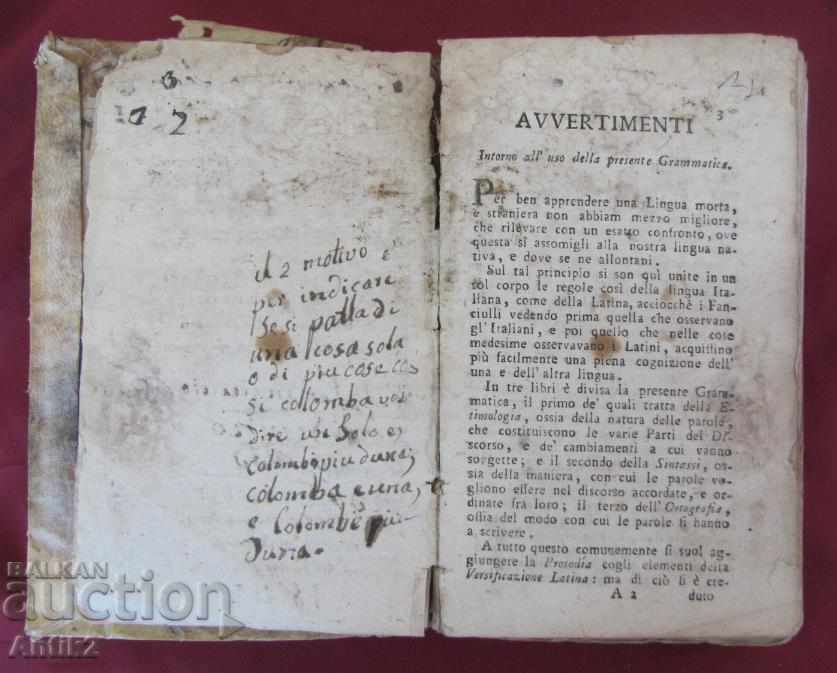 3
7 2
il 2 motivo e
per indicare
se si palla di
una cosa sola
o di piu cose co
si colomba vol
dire un solo e
Colombe piu duna;
colomba e una,
e Colombe piu
duna.
3
AVVERTIMENTI
Intorno all' uso della presente Grammatica.
Per ben apprendere una Lingua morta,
e straniera non abbiam mezzo migliore,
che rilevare con un esatto confronto, ove
questa si assomigli alla nostra lingua na-
tiva, e dove se ne allontani.
Sul tal principio si son quì unite in un
sol corpo le regole così della lingua Ita-
liana, come della Latina, acciocchè i Fan-
ciulli vedendo prima quella che osservano
gl' Italiani, e poi quello che nelle cose
medesime osservavano i Latini, acquistino
più facilmente una piena cognizione dell'
una e dell' altra lingua.
In tre libri è divisa la presente Gram-
matica, il primo de' quali tratta della E-
timologia, ossia della natura delle parole,
che costituiscono le varie Parti del Di-
scorso, e de' cambiamenti a cui vanno
soggette; e il secondo della Sintassi, os-
sia della maniera, con cui le parole vo-
gliono essere nel discorso accordate, e or-
dinate fra loro; il terzo dell' Ortografia,
ossia del modo con cui le parole si hanno
a scrivere.
A tutto questo comunemente si suol ag-
giungere la Prosodia cogli elementi della
Versificazione Latina: ma di ciò si è cre-
A 2 duto
BALKAN
auction
Antik2